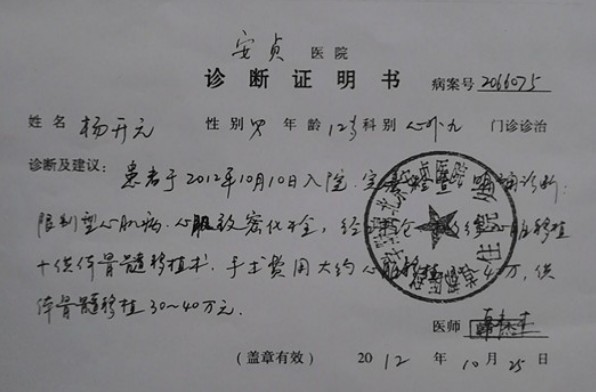 安贞 医院
诊断证明书 病案号 2066075
姓名 杨开元 性别 男 年龄 12岁 科别 心外九 门诊诊治
诊断及建议: 患者于2012年10月10日入院.完善检查 明确诊断:
限制型心肌病.心肌致密化不全,经 心脏移植
+供体骨髓移植术.手术费用大约心脏移植 40万,供
体骨髓移植30~40万元.
医师
(盖章有效) 2012年10月25日